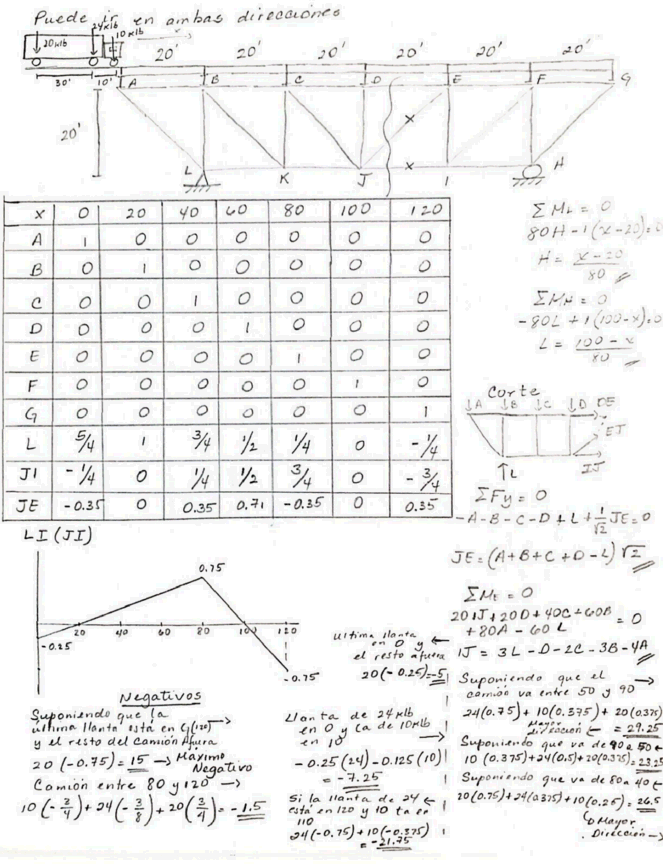 Puede ir en ambas direcciónes
20klb 24klb 10klb
30' 10'
20' 20' 20' 20' 20' 20'
A B C D E F G
20'
x
x
L K J I H
x 0 20 40 60 80 100 120
A 1 0 0 0 0 0 0
B 0 1 0 0 0 0 0
C 0 0 1 0 0 0 0
D 0 0 0 1 0 0 0
E 0 0 0 0 1 0 0
F 0 0 0 0 0 1 0
G 0 0 0 0 0 0 1
L 5/4 1 3/4 1/2 1/4 0 -1/4
JI -1/4 0 1/4 1/2 3/4 0 -3/4
JE -0.35 0 0.35 0.71 -0.35 0 0.35
ΣML = 0
80H-1(x-20)=0
H = x-20/80
ΣMH = 0
-80L+1(100-x)=0
L = 100-x/80
Corte
A B C D DE
EJ
IJ
L
ΣFy = 0
-A-B-C-D+L+1/√2 JE=0
JE=(A+B+C+D-L)√2
ΣME = 0
20IJ+20D+40C+60B
+80A-60L = 0
IJ = 3L-D-2C-3B-4A
LI (JI)
0.75
20 40 60 80 100 120
-0.25
-0.75
ultima llanta ←
en 0 y
el resto afuera
20(-0.25)=-5
Negativos
Suponiendo que la →
ultima llanta está en G(120)
y el resto del camión Afuera
20(-0.75)=15 → Máximo
Negativo
Camión entre 80 y 120 →
10(-3/4)+24(-3/8)+20(3/4)=-1.5
Llanta de 24klb
en 0 y la de 10klb
en 10 →
-0.25(24)-0.125(10)
= -7.25
Si la llanta de 24 ←
está en 120 y 10 ta en
110
24(-0.75)+10(-0.375)
= -21.75
Suponiendo que el →
camión va entre 50 y 90
24(0.75)+10(0.375)+20(0.375)
Mayor
dirección ← = 29.25
Suponiendo que va de 90 a 50 ←
10(0.375)+24(0.5)+20(0.375)= 23.25
Suponiendo que va de 80 a 40 ←
20(0.75)+24(0.375)+10(0.25)= 26.5
Mayor
Dirección →